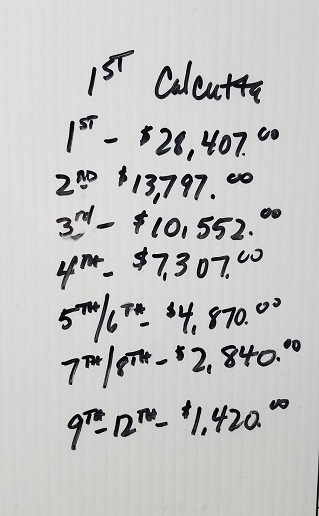 1ST Calcutta
1ST - $28,407.00
2ND $13,797.00
3rd - $10,552.00
4TH - $7,307.00
5TH/6TH - $4,870.00
7TH/8TH - $2,840.00
9TH - 12TH - $1,420.00